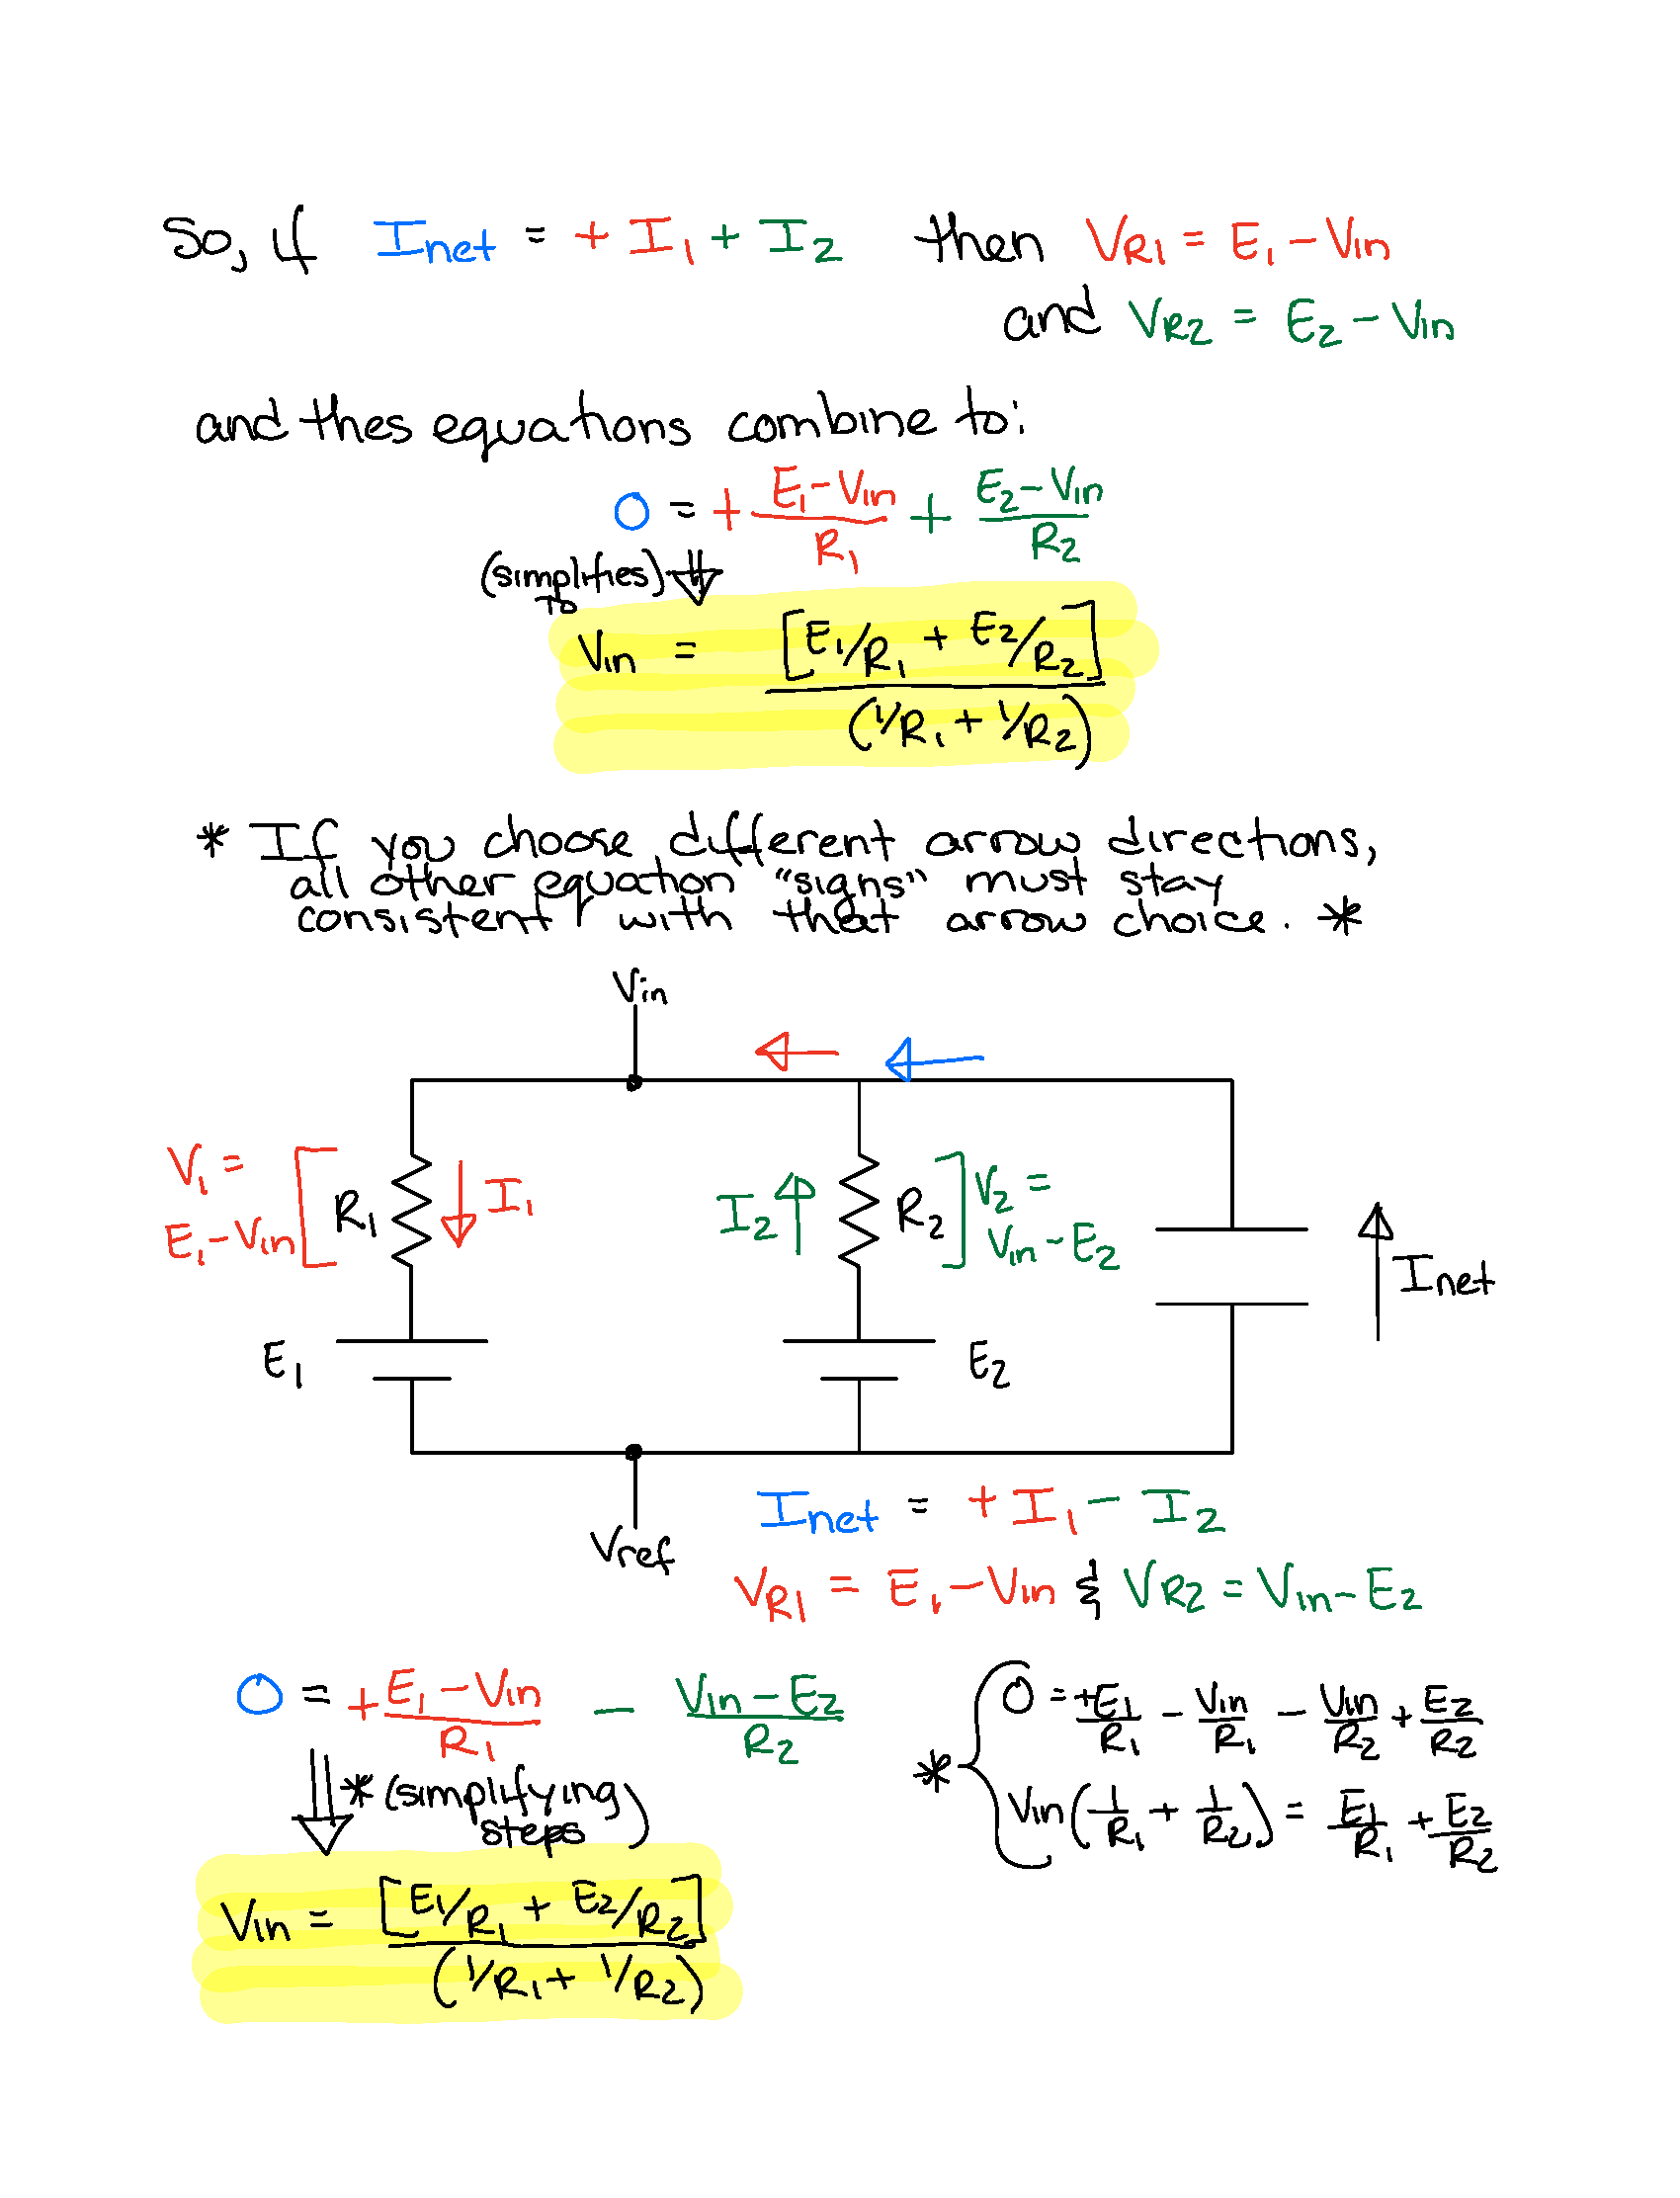 So, if Inet = + I1 + I2 then VR1 = E1 - Vin
and VR2 = E2 - Vin
and thes equations combine to:
0 = + (E1 - Vin)/R1 + (E2 - Vin)/R2
(simplifies to)
Vin = [E1/R1 + E2/R2] / (1/R1 + 1/R2)
* If you choose different arrow directions,
all other equation "signs" must stay
consistent with that arrow choice. *
Vin
V1 =
E1 - Vin
R1
I1
I2
R2
V2 =
Vin - E2
Inet
E1
E2
Vref
Inet = + I1 - I2
VR1 = E1 - Vin & VR2 = Vin - E2
0 = + (E1 - Vin)/R1 - (Vin - E2)/R2
* (simplifying
steps)
Vin = [E1/R1 + E2/R2] / (1/R1 + 1/R2)
* 0 = +E1/R1 - Vin/R1 - Vin/R2 + E2/R2
Vin(1/R1 + 1/R2) = E1/R1 + E2/R2